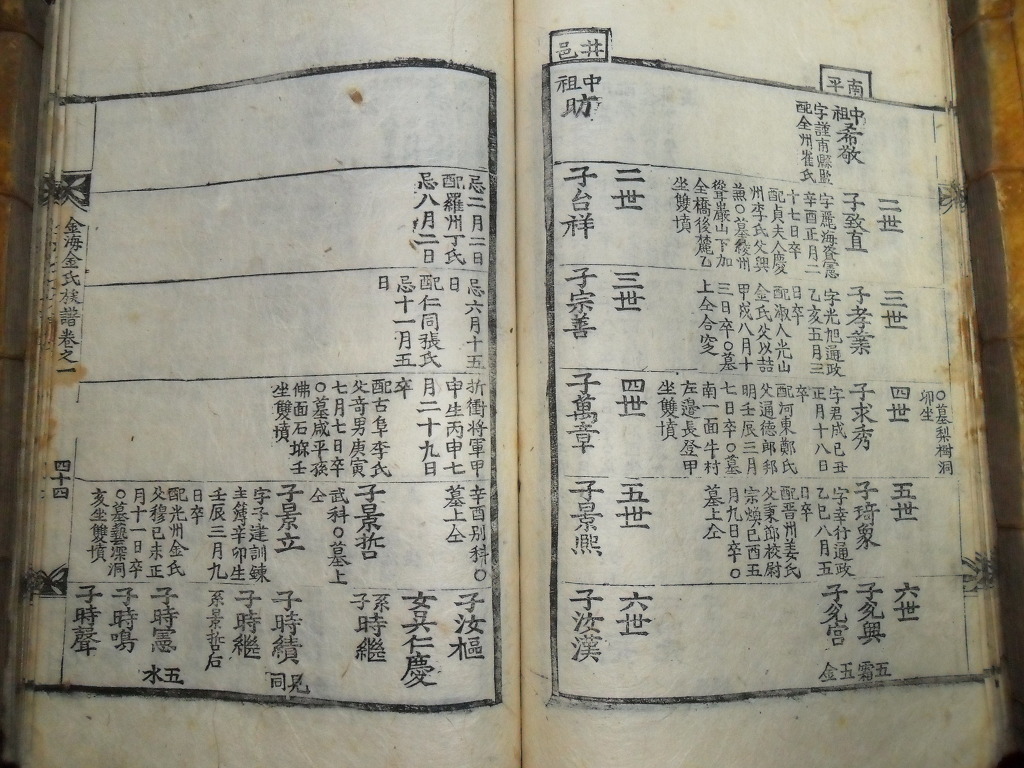 南平
中祖希敬
字謹南縣監
配全州崔氏
二世
子致直
字麗海資憲
辛酉正月二
十七日卒
配貞夫人慶
州李氏父興
燕○墓綾州
聳巖山下加
全橋後麓乙
坐雙墳
三世
子孝業
字光旭通政
乙亥五月三
日卒
配淑人光山
金氏父以詰
甲戌八月十
三日卒○墓
上仝合窆
四世
子求秀
字君成己丑
正月十八日
卒
配河東鄭氏
父通德郎邦
明壬辰三月
七日卒○墓
南一面牛村
左邊長登甲
坐雙墳
○墓梨樹洞
卯坐
五世
子琦象
字幸行通政
乙巳八月五
日卒
配晋州姜氏
父秉郎校尉
宗煥己酉五
月九日卒○
墓上仝
六世
子允興
子允宮
五霜
五金
井邑
中祖昉
二世
子台祥
三世
子宗善
四世
子萬章
五世
子景熙
六世
子汝漢
忌二月二日
配羅州丁氏
忌八月二日
忌六月十五
日
配仁同張氏
忌十一月五
日
折衝將軍甲
申生丙申七
月二十九日
卒
配古阜李氏
父奇男庚寅
七月七日卒
○墓咸平孩
佛面石㙮壬
坐雙墳
辛酉別科○
墓上仝
子景哲
武科○墓上
仝
子景立
字子建訓鍊
主簿辛卯生
壬辰三月九
日卒
配光州金氏
父穆己未正
月十一日卒
○墓藝㵛洞
亥坐雙墳
子汝樞
女吳仁慶
系子時繼
子時績
兄同
子時繼
系景哲后
子時憲
五水
子時鳴
子時聲
金海金氏族譜卷之一
四十四